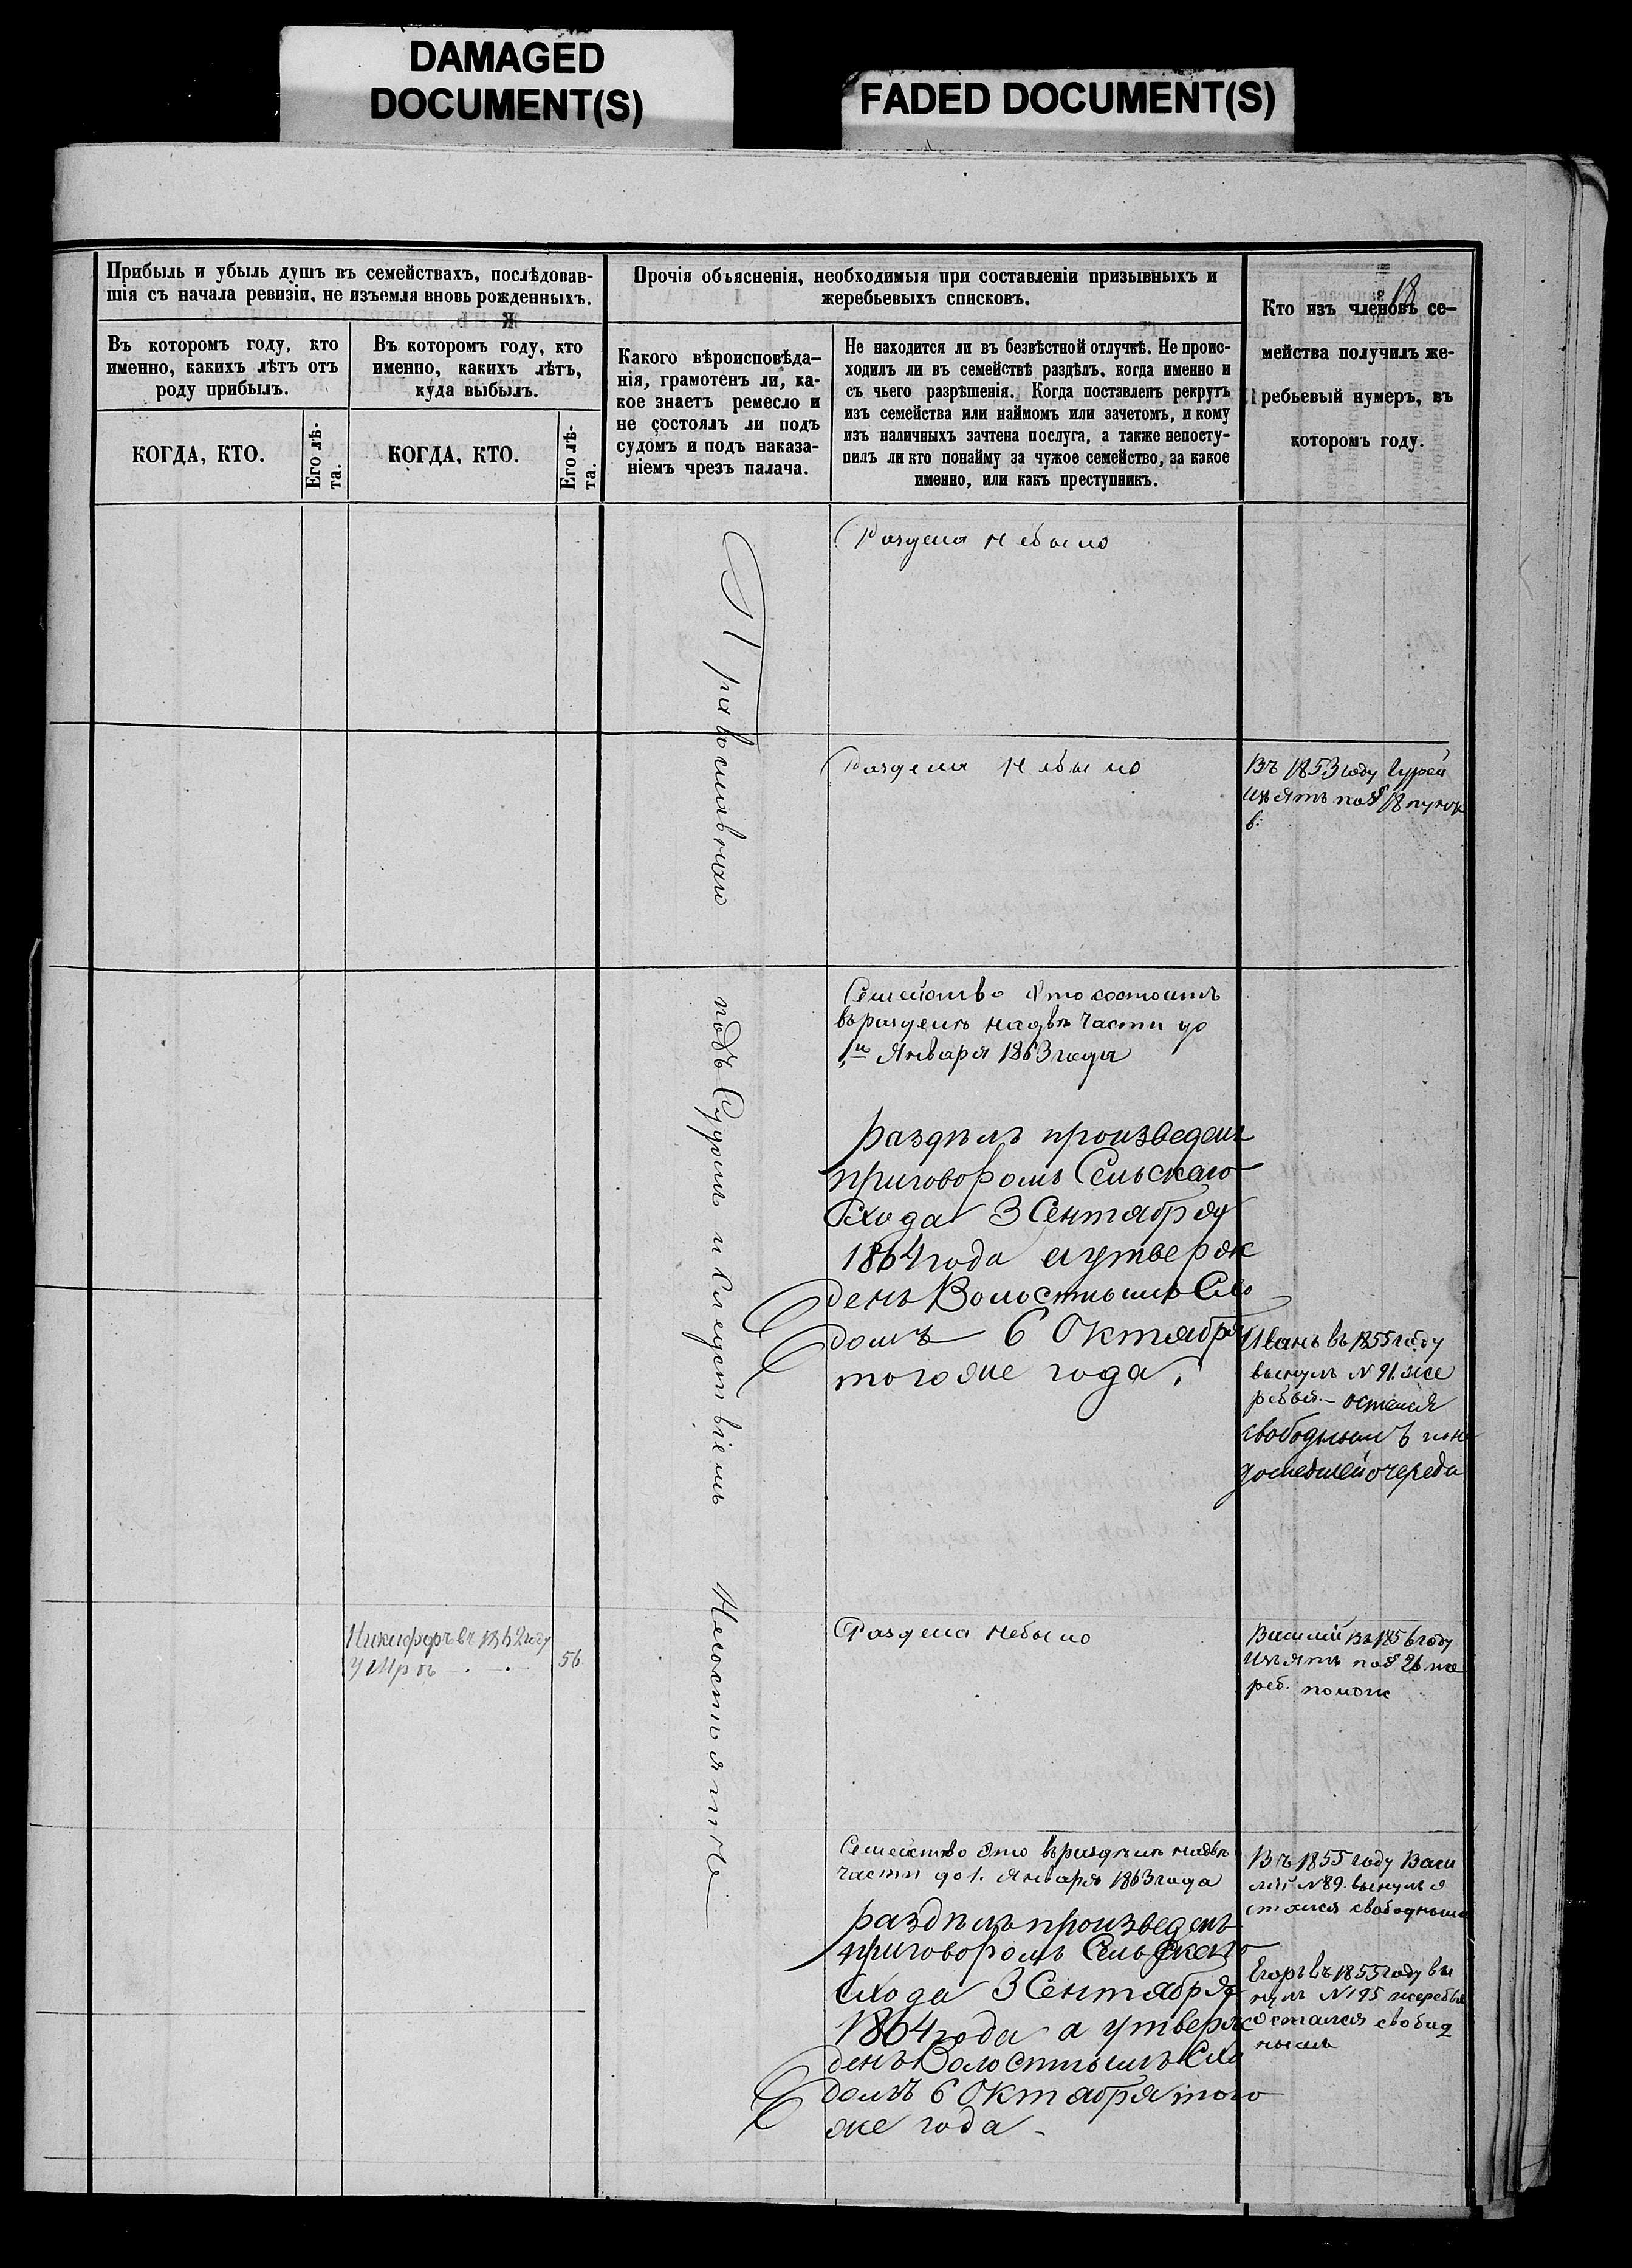 DAMAGED
DOCUMENT(S)
FADED DOCUMENT(S)
18
Прибыль и убыль душъ въ семействахъ, послѣдовав-
шія съ начала ревизіи, не изъемля вновь рожденныхъ.
Въ которомъ году, кто
именно, какихъ лѣтъ отъ
роду прибылъ.
Въ которомъ году, кто
именно, какихъ лѣтъ,
куда выбылъ.
КОГДА, КТО.
Его лѣ-
та.
КОГДА, КТО.
Его лѣ-
та.
Прочія объясненія, необходимыя при составленіи призывныхъ и
жеребьевыхъ списковъ.
Какого вѣроисповѣда-
нія, грамотенъ ли, ка-
кое знаетъ ремесло и
не состоялъ ли подъ
судомъ и подъ наказа-
ніемъ чрезъ палача.
Не находится ли въ безвѣстной отлучкѣ. Не проис-
ходилъ ли въ семействѣ раздѣлъ, когда именно и
съ чьего разрѣшенія. Когда поставленъ рекрутъ
изъ семейства или наймомъ или зачетомъ, и кому
изъ наличныхъ зачтена послуга, а также непосту-
пилъ ли кто понайму за чужое семейство, за какое
именно, или какъ преступникъ.
Кто изъ членовъ се-
мейства получилъ же-
ребьевый нумеръ, въ
которомъ году.
Православнаго подъ Судомъ и Следствіемъ
Раздела небыло
Раздела небыло
Въ 1853 году Гурей
Изъятъ по § 18 пунк
в.
Семейство Это состоитъ
въ разделѣ надвѣ части до
1го Января 1863 года
раздѣлъ произведенъ
приговоромъ Сельскаго
Схода 3 Сентября
1864 года а утверж
денъ Волостнымъ Схо
домъ 6 Октября
тогоже года.
Иванъ въ 1855 году
вынулъ № 91. же
ребья - остался
свободнымъ
дошедшей очереди
Никифоръ въ 1862 году
Умръ
56
Раздела небыло
Василій въ 1856 году
Изъятъ по § 26 же
реб. полож
Семейство Это въ раздѣлѣ надвѣ
части до 1. Января 1863 года
раздѣлъ произведенъ
приговоромъ Сельскаго
Схода 3 Сентября
1864 года а утверж
денъ Волостнымъ Схо
домъ 6 Октября того
же года -
Въ 1855 году Васи
лій № 89. вынулъ о
стался свободнымъ
Егоръ въ 1855 году вы
нулъ № 195 жеребья
Остался свобод
нымъ